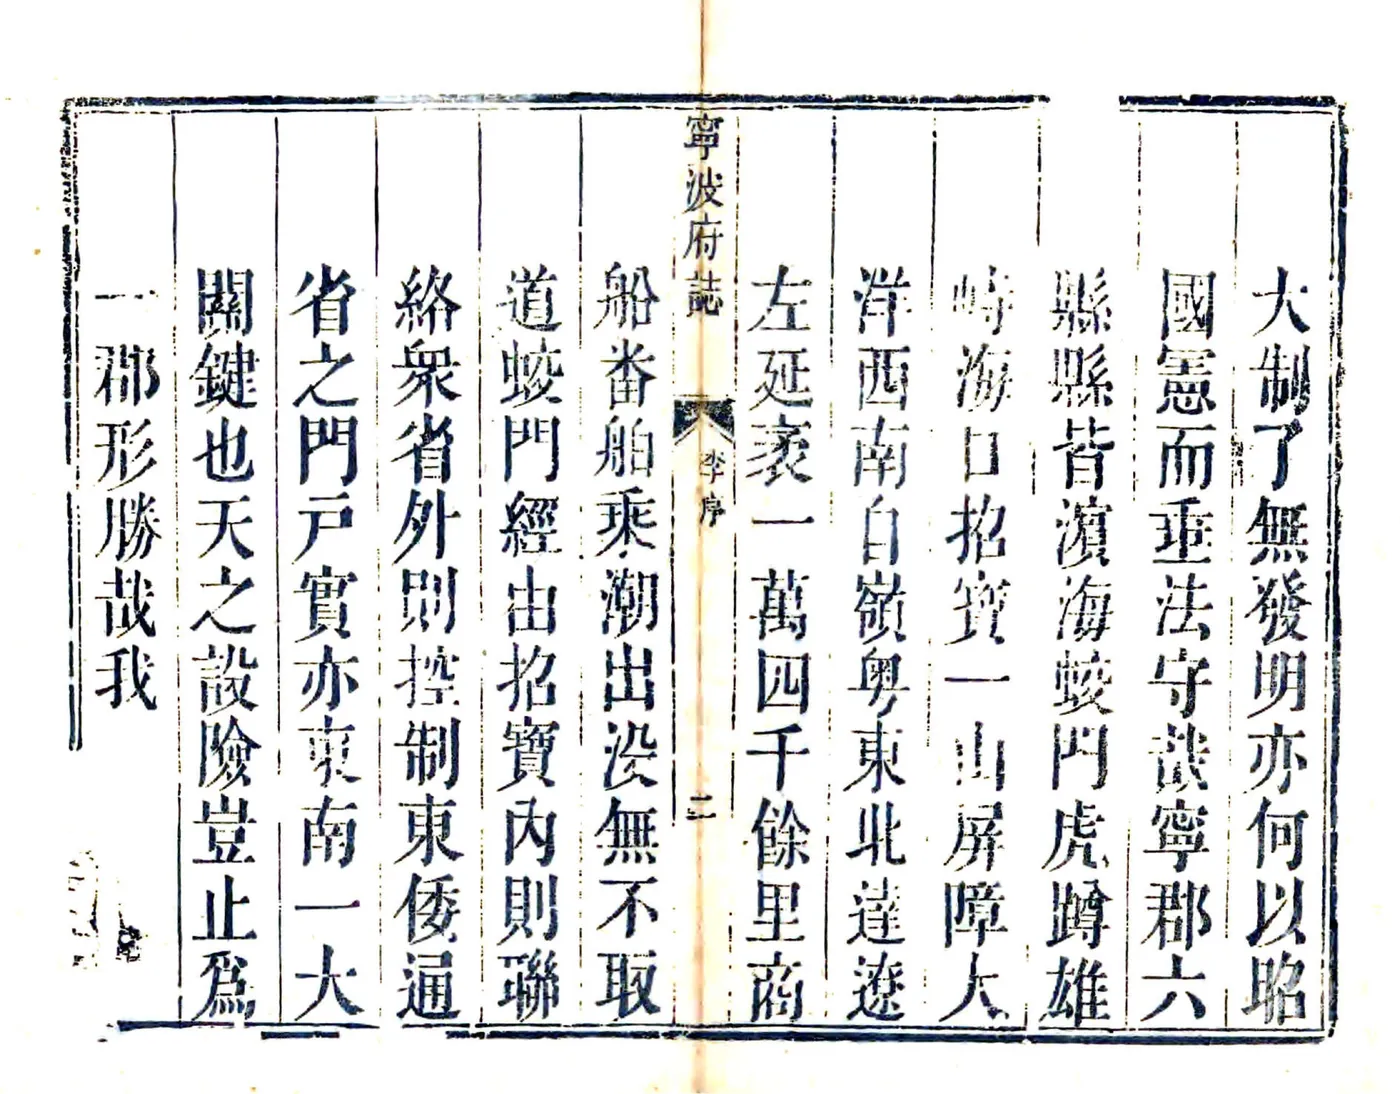 大制了無發明亦何以昭
國憲而垂法守哉寧郡六
縣縣皆濵海蛟門虎蹲雄
峙海口招寶一山屏障大
洋西南自嶺粵東北達遼
左延袤一萬四千餘里商
寧波府誌
李序
二
船番舶乘潮出没無不取
道蛟門經由招寶內則聯
絡衆省外則控制東倭通
省之門戸實亦東南一大
關鍵也天之設險豈止爲
一郡形勝哉我